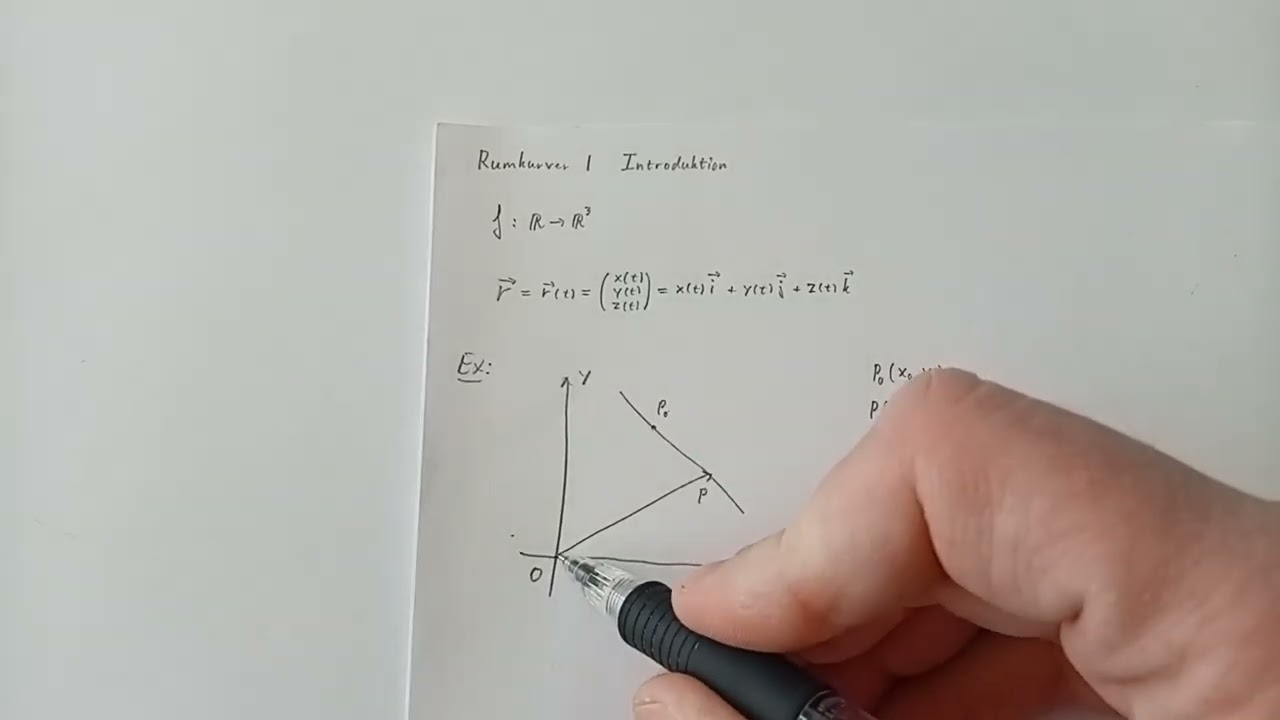 Rumkurver 1 Introduktion
f : ℝ → ℝ³
r⃗ = r⃗(t) = (x(t) y(t) z(t)) = x(t) i⃗ + y(t) j⃗ + z(t) k⃗
Ex:
y
P₀
P
O
P₀ (x₀, y
P(